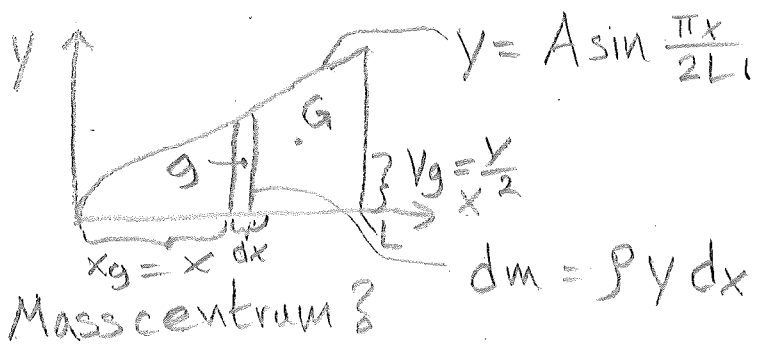 y
y = A sin πx/2L
G
g
yg = y/2
x
L
xg = x
dx
dm = ρ y dx
Masscentrum?